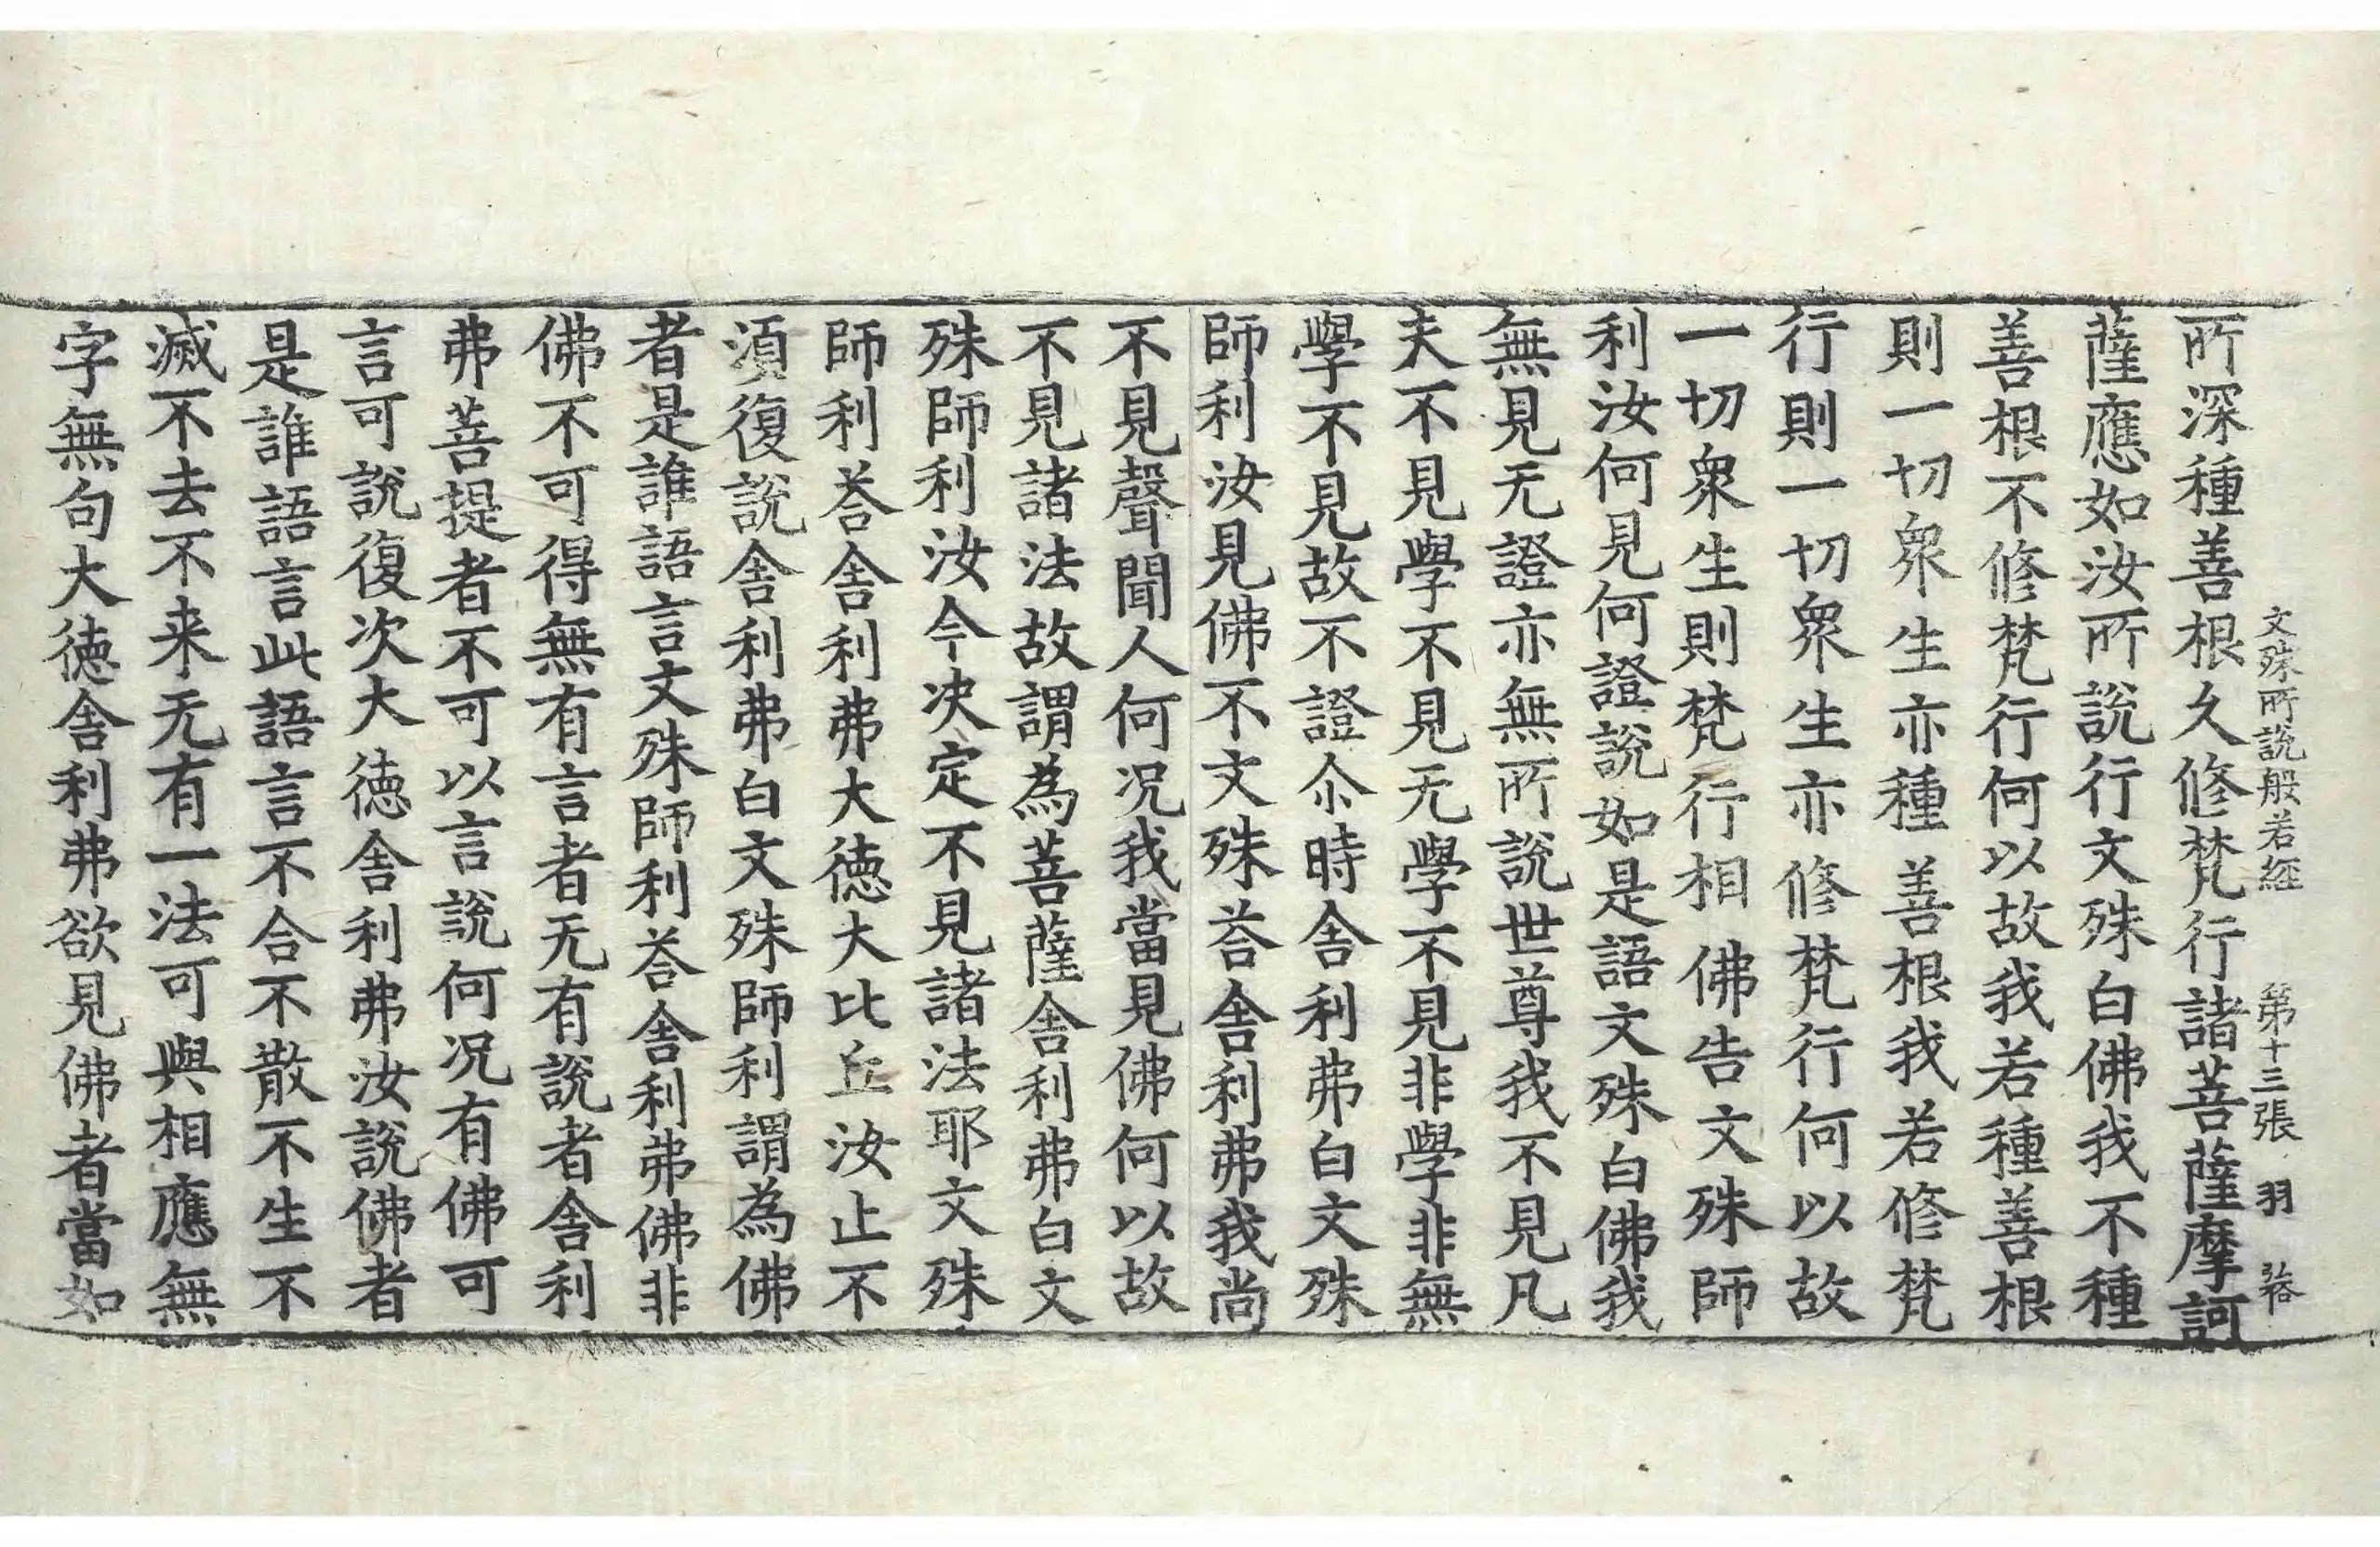 文殊所說般若經 第十三張 羽
所深種善根久修梵行諸菩薩摩訶
薩應如汝所說行文殊白佛我不種
善根不修梵行何以故我若種善根
則一切衆生亦種善根我若修梵
行則一切衆生亦修梵行何以故
一切衆生則梵行相佛告文殊師
利汝何見何證說如是語文殊白佛我
無見无證亦無所說世尊我不見凡
夫不見學不見无學不見非學非無
學不見故不證尒時舍利弗白文殊
師利汝見佛不文殊荅舍利弗我尚
不見聲聞人何况我當見佛何以故
不見諸法故謂為菩薩舍利弗白文
殊師利汝今决定不見諸法耶文殊
師利荅舍利弗大德大比丘汝止不
須復說舍利弗白文殊師利謂為佛
者是誰語言文殊師利荅舍利弗佛非
佛不可得無有言者无有說者舍利
弗菩提者不可以言說何况有佛可
言可說復次大德舍利弗汝說佛者
是誰語言此語言不合不散不生不
滅不去不来无有一法可與相應無
字無句大德舍利弗欲見佛者當如